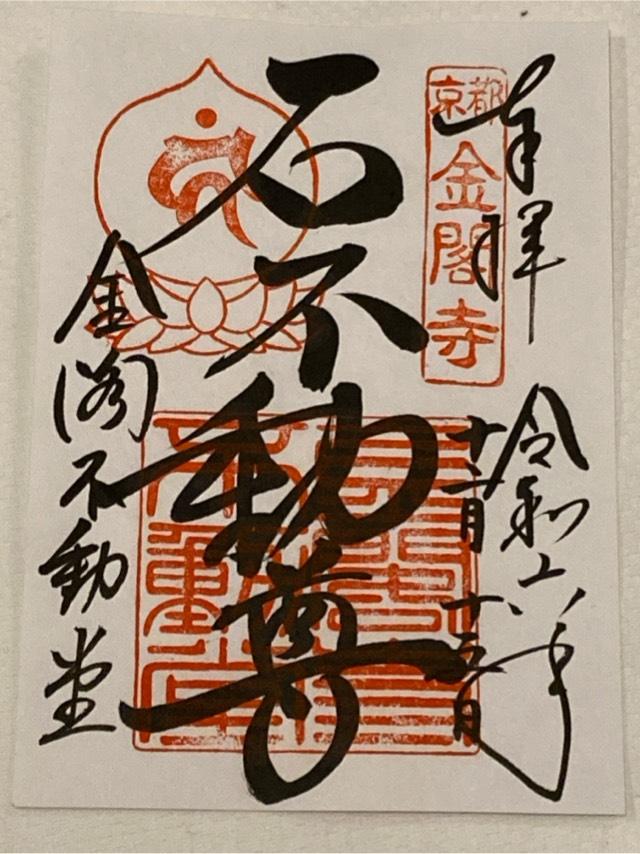 奉拝
京都
金閣寺
令和六年
十二月十五日
石不動尊
金閣不動堂